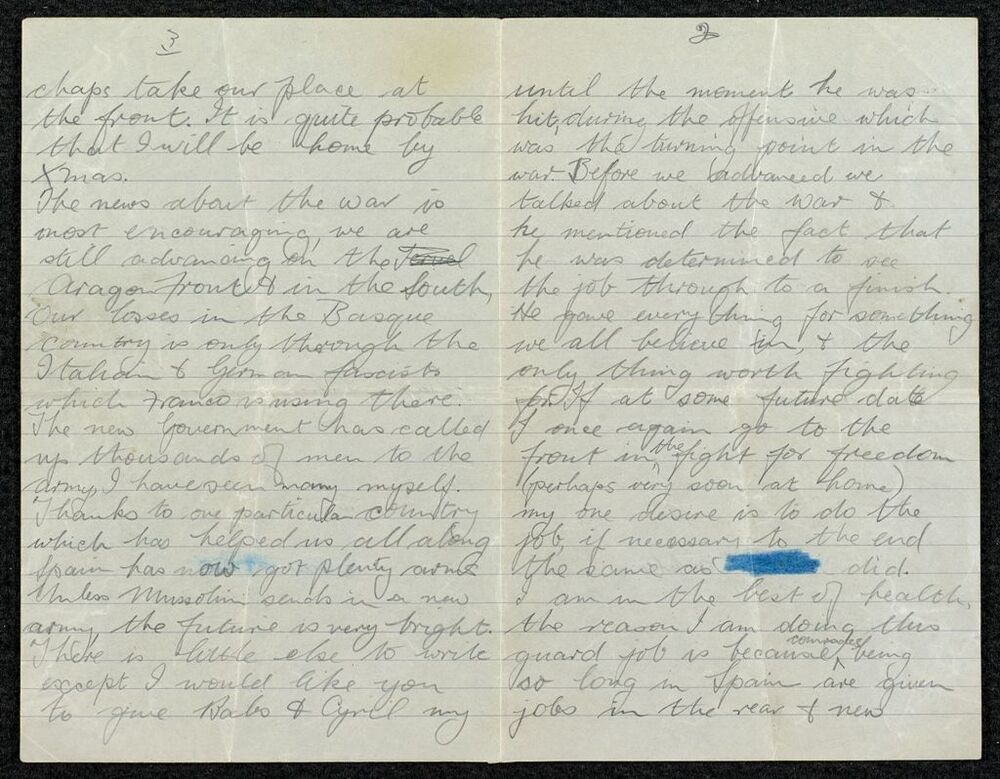 2
until the moment he was
hit, during the offensive which
was the turning point in the
war. Before we advanced we
talked about the war &
he mentioned the fact that
he was determined to see
the job through to a finish.
He gave everything for something
we all believe in, & the
only thing worth fighting
for. If at some future date
I once again go to the
front in the fight for freedom
(perhaps very soon at home)
my one desire is to do the
job, if necessary to the end
the same as did.
I am in the best of health,
the reason I am doing this
guard job is because comrades being
so long in Spain are given
jobs in the rear & new
3
chaps take our place at
the front. It is quite probable
that I will be home by
Xmas.
The news about the war is
most encouraging, we are
still advancing on the Teruel
Aragon Front & in the South,
Our losses in the Basque
country is only through the
Italian & German fascists
which Franco is using there.
The new Government has called
up thousands of men to the
army, I have seen many myself.
Thanks to one particular country
which has helped us all along
Spain has now got plenty arms
Unless Mussolini sends in a new
army, the future is very bright.
There is little else to write
except I would like you
to give Babs & Cyril my